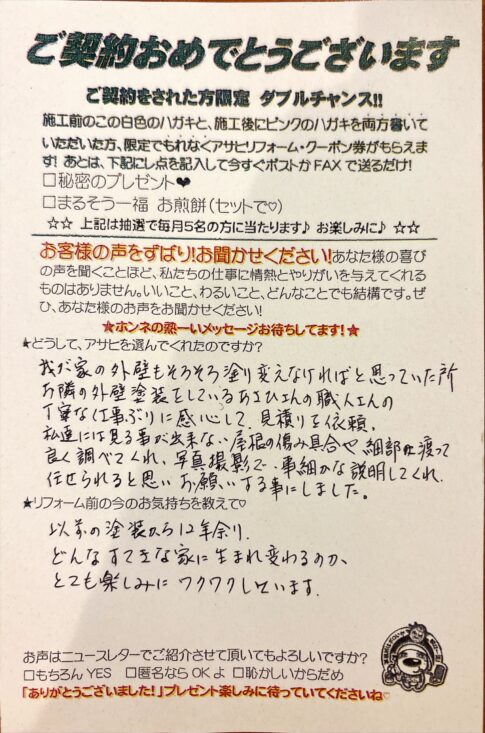 ご契約おめでとうございます
ご契約をされた方限定 ダブルチャンス!!
施工前のこの白色のハガキと、施工後にピンクのハガキを両方書いて
いただいた方、限定でもれなくアサヒリフォーム・クーポン券がもらえま
す! あとは、下記にレ点を記入して今すぐポストかFAXで送るだけ!
□秘密のプレゼント❤
□まるぞう一福 お煎餅(セットで♡)
☆☆ 上記は抽選で毎月5名の方に当たります♪ お楽しみに♪ ☆☆
お客様の声をずばり!お聞かせください!あなた様の喜び
の声を聞くことほど、私たちの仕事に情熱とやりがいを与えてくれる
ものはありません。いいこと、わるいこと、どんなことでも結構です。ぜ
ひ、あなた様のお声をお聞かせください!
★ホンネの熱ーいメッセージお待ちしてます!★
★どうして、アサヒを選んでくれたのですか?
我が家の外壁もそろそろ塗り変えなければと思っていた所
お隣の外壁塗装をしているあさひさんの職人さんの
丁寧な仕事ぶりに感心して、見積りを依頼。
私達には見る事が出来ない屋根の傷み具合や細部に渡って
良く調べてくれ、写真撮影で、事細かな説明してくれ、
任せられると思いお願いする事にしました。
★リフォーム前の今のお気持ちを教えて♡
以前の塗装から12年余り、
どんなすてきな家に生まれ変わるのか、
とても楽しみにワクワクしています。
お声はニュースレターでご紹介させて頂いてもよろしいですか?
□もちろんYES □匿名ならOKよ □恥かしいからだめ
「ありがとうございました!」プレゼント楽しみに待っていてくださいね♡